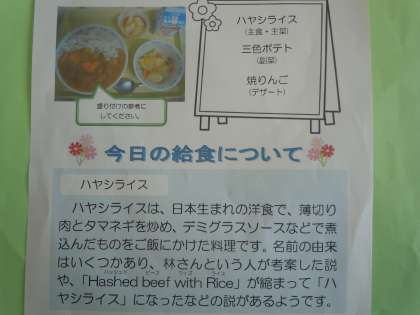 ハヤシライス
（主食・主菜）
三色ポテト
（副菜）
焼りんご
（デザート）
盛り付けの参考に
してください。
今日の給食について
ハヤシライス
ハヤシライスは、日本生まれの洋食で、薄切り
肉とタマネギを炒め、デミグラスソースなどで煮
込んだものをご飯にかけた料理です。名前の由来
はいくつかあり、林さんという人が考案した説
ハッシュド ビーフ ウィズ ライス
や、「Hashed beef with Rice」が縮まって「ハ
ヤシライス」になったなどの説があるようです。